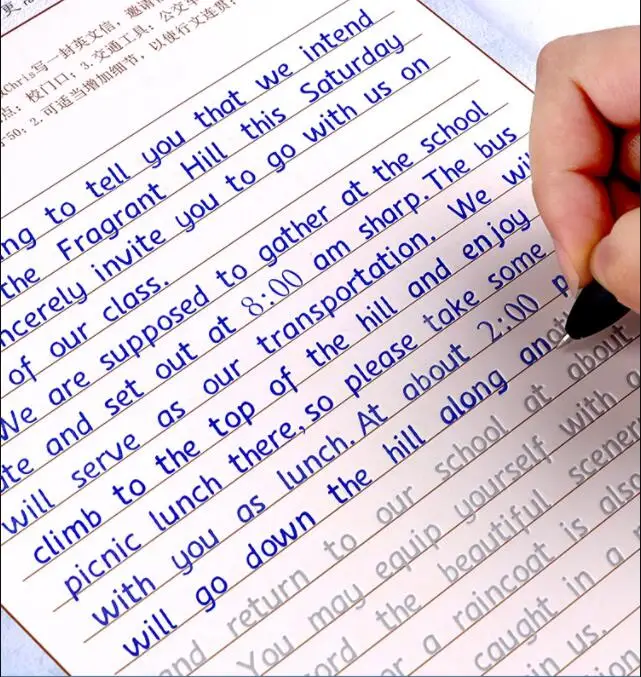 Chris写一封英文信，邀请
点：校门口；3.交通工具：公交车
50；2.可适当增加细节，以使行文连贯；
ng to tell you that we intend
the Fragrant Hill this Saturday
ncerely invite you to go with us on
of our class.
We are supposed to gather at the school
te and set out at 8:00 am sharp. The bus
will serve as our transportation. We wi
climb to the top of the hill and enjoy
picnic lunch there, so please take some
with you as lunch. At about 2:00 p
will go down the hill along anot
and return to our school at about
You may equip yourself with a
ord the beautiful scener
or a raincoat is also
caught in a
in us.
ion